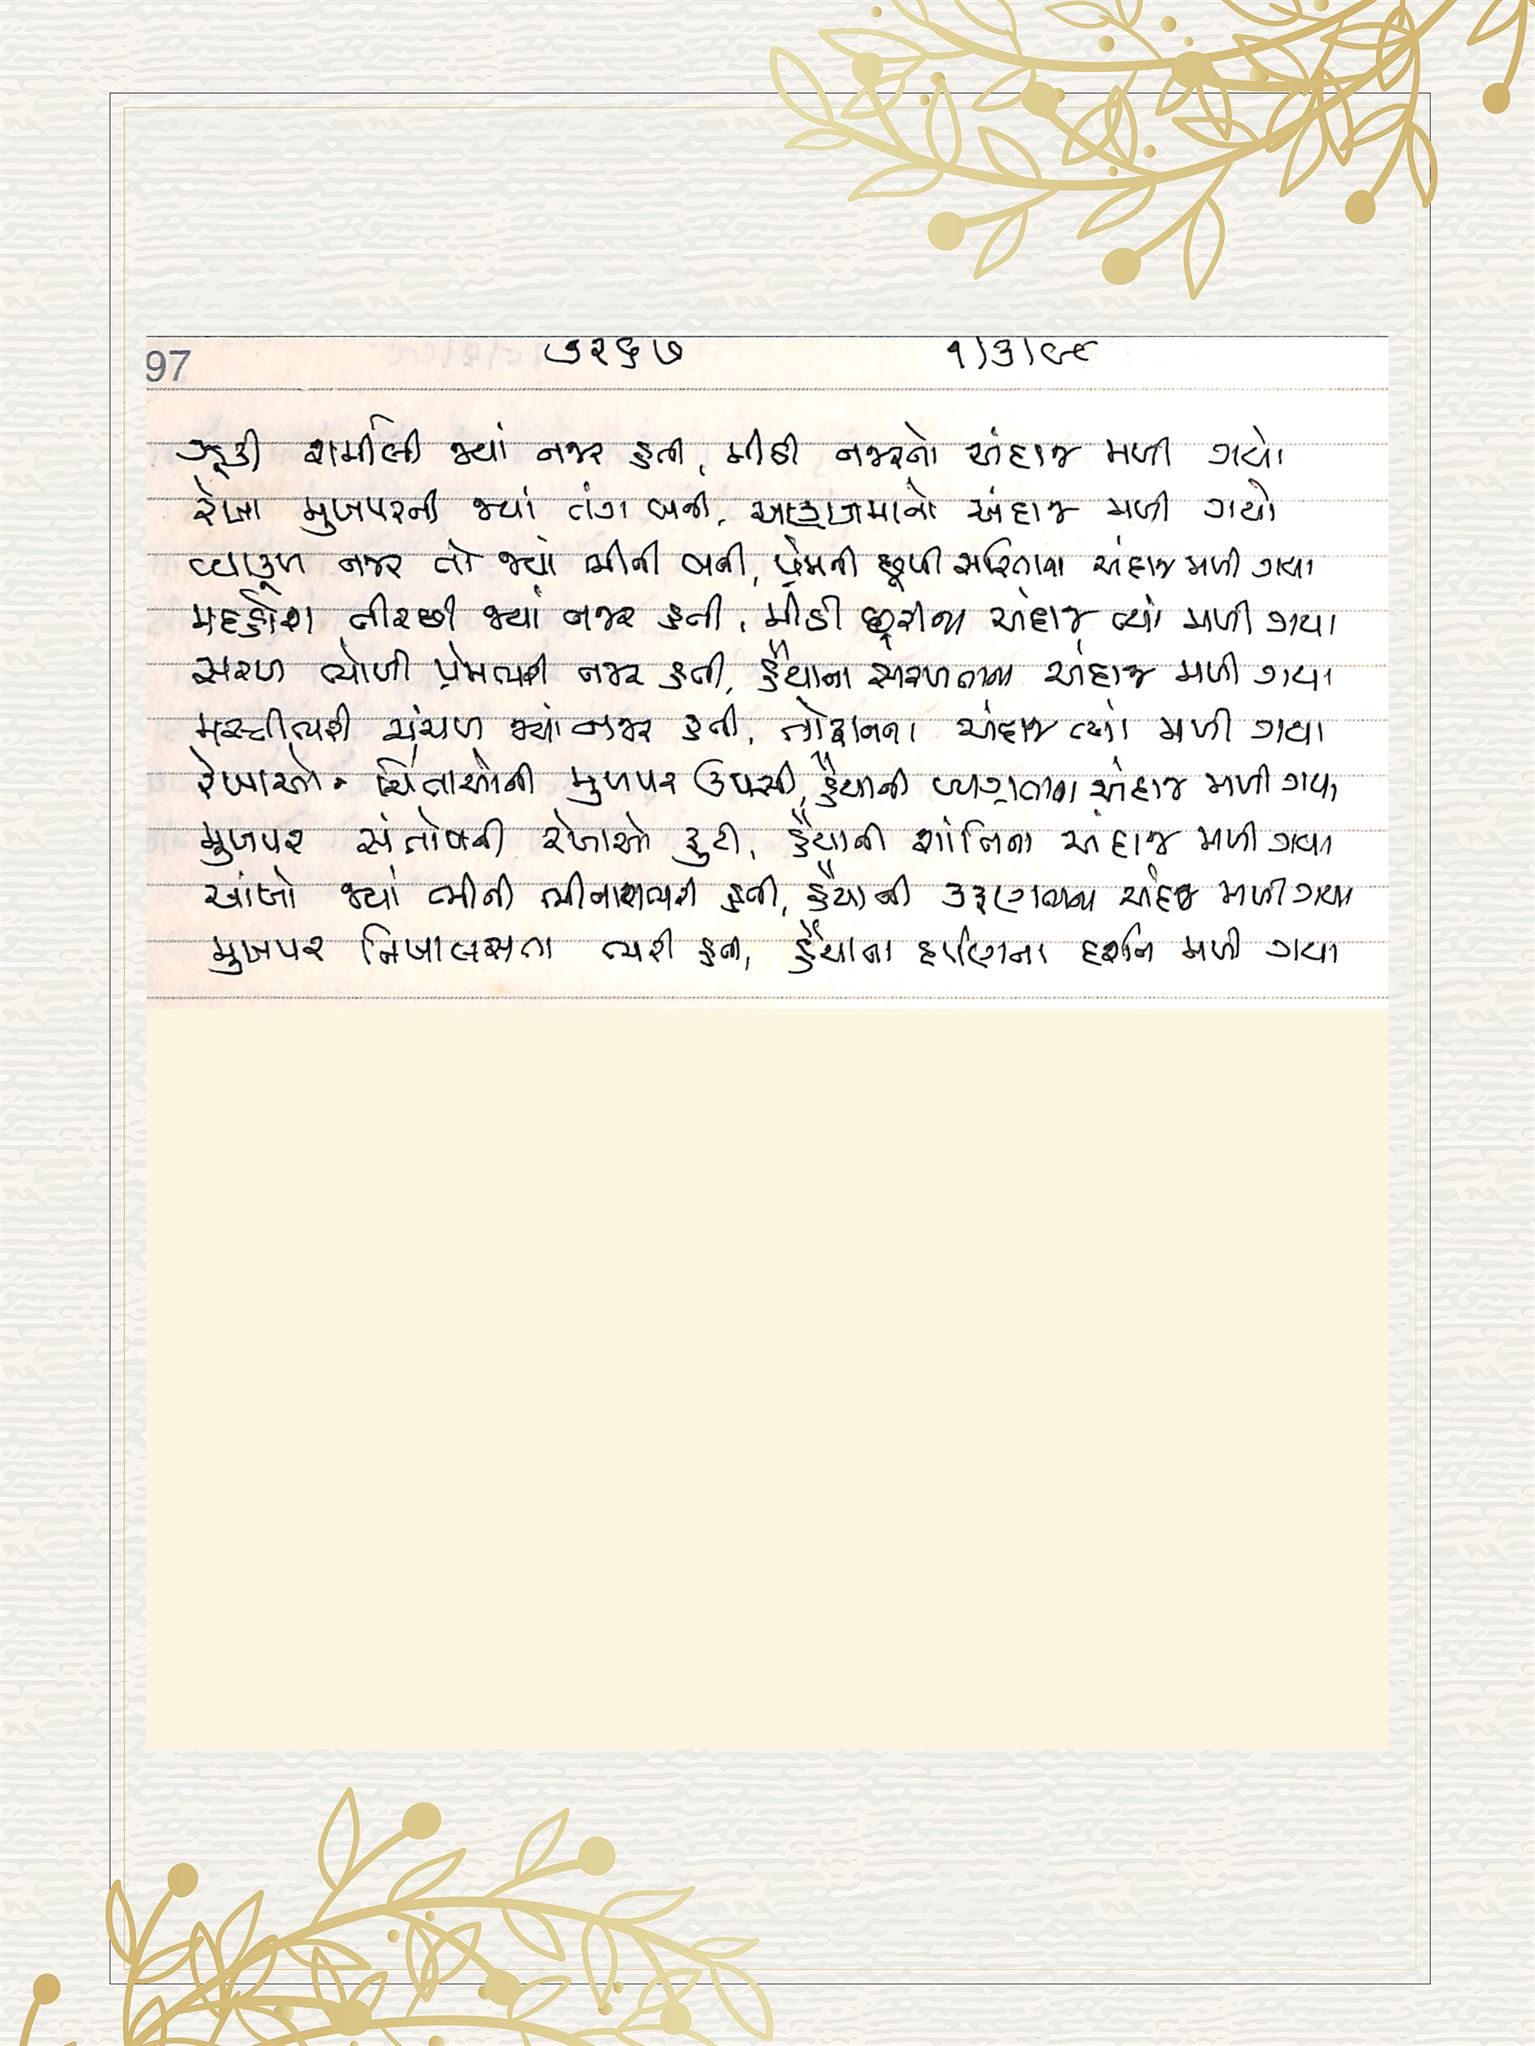 97 ૭૨૬૭ ૧)૩)૯૯
ઝૂકી શર્મીલી જ્યાં નજર હતી, મીઠી નજરનો અંદાજ મળી ગયો
રેખા મુખપરની જ્યાં તંગ બની, અણગમાનો અંદાજ મળી ગયો
વ્યાકૂળ નજર તો જ્યાં ભીની બની, પ્રેમની છૂપી સરિતાના અંદાજ મળી ગયા
મદહોશ તીરછી જ્યાં નજર હતી, મીઠી છૂરીના અંદાજ ત્યાં મળી ગયા
સરળ ભોળી પ્રેમભરી નજર હતી, હૈયાના સરળતાના અંદાજ મળી ગયા
મસ્તીભરી ચંચળ જ્યાં નજર હતી, તોફાનના અંદાજ ત્યાં મળી ગયા
રેખાઓ ચિંતાઓની મુખપર ઉપસી, હૈયાની વ્યગ્રતાના અંદાજ મળી ગયા
મુખપર સંતોષની રેખાઓ ફુટી, હૈયાની શાંતિના અંદાજ મળી ગયા
આંખો જ્યાં ભીની ભીનાશભરી હતી, હૈયાની કરૂણતાના અંદાજ મળી ગયા
મુખપર નિખાલસતા ભરી હતી, હૈયાના દર્પણના દર્શન મળી ગયા